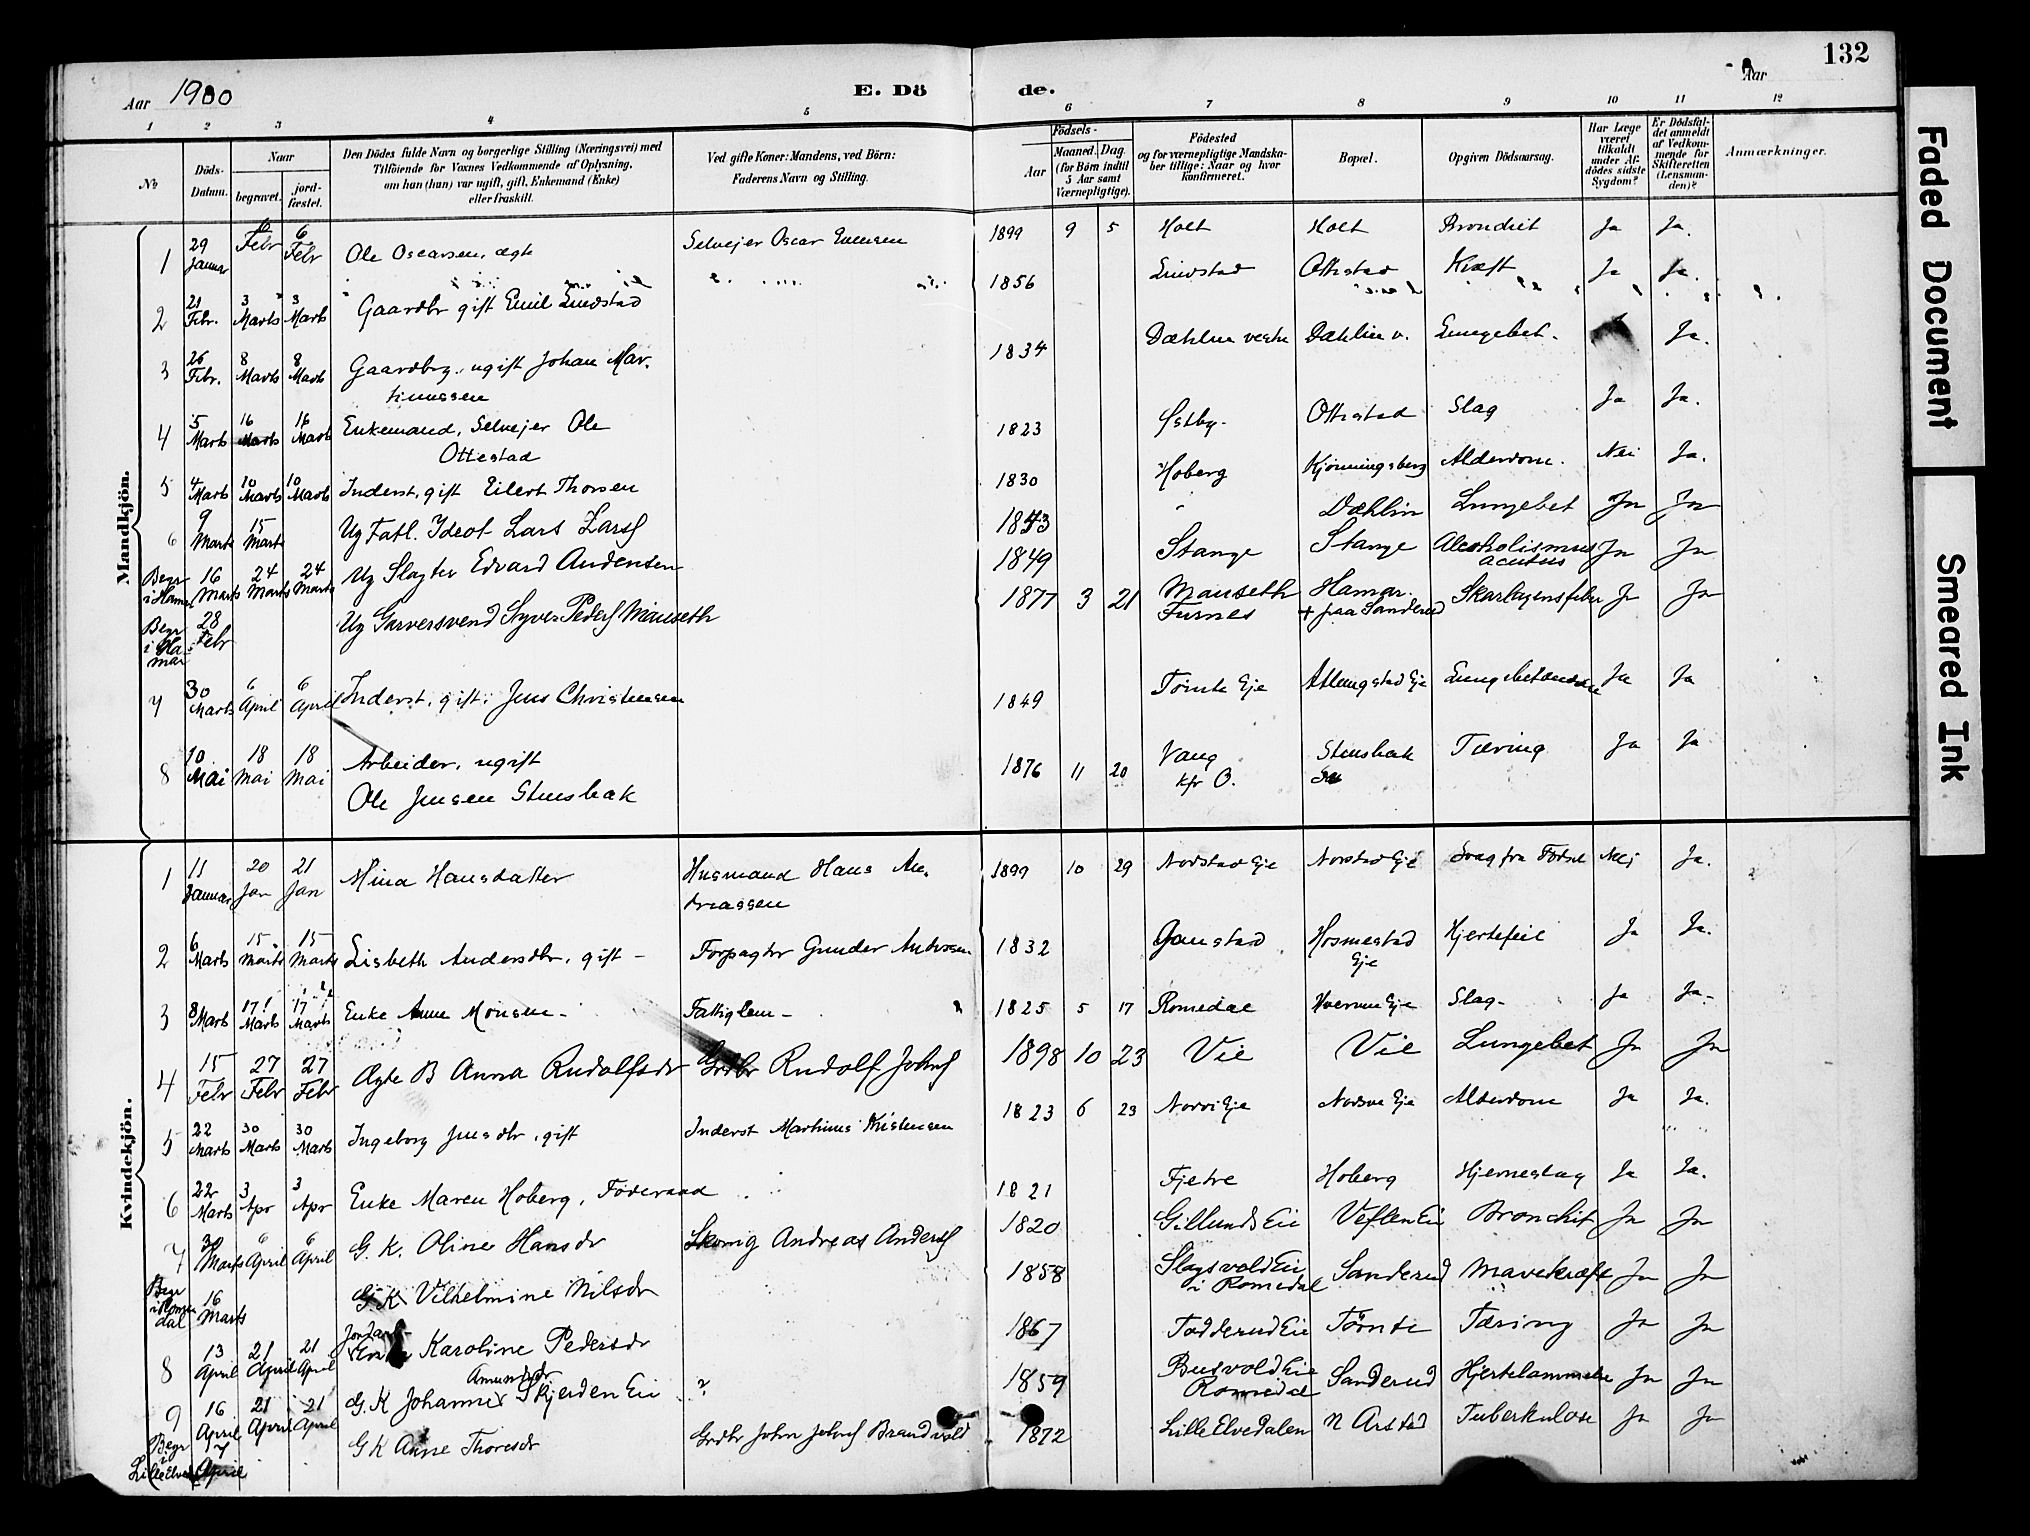 132
Aar 1900
E. Dö
de.
Aar
1 2 3 4 5 6 7 8 9 10 11 12
№
Döds-Datum.
Naar
begravet.
jord-fæstet.
Den Dödes fulde Navn og borgerlige Stilling (Næringsvei) med
Tilföiende for Voxnes Vedkommende af Oplysning,
om han (hun) var ugift, gift, Enkemand (Enke)
eller fraskilt.
Ved gifte Koner: Mandens, ved Börn:
Faderens Navn og Stilling.
Födsels-
Aar
Maaned. Dag.
(for Börn indtil 5 Aar samt Værnepligtige).
Födested
og for værnepligtige Mandskaber tillige: Naar og hvor konfirmeret.
Bopæl.
Opgiven Dödsaarsag.
Har Læge været tilkaldt under Afdödes sidste Sygdom?
Er Dödsfaldet anmeldt af Vedkommende for Skifteretten (Lensmanden)?
Anmærkninger.
Mandkjön.
1 29 Januar 6 Febr 6 Febr Ole Oscarsen, ægte Selvejer Oscar Evensen 1899 9 5 Holt Holt Bronchit Ja Ja.
2 21 Febr. 3 Marts 3 Marts Gaardbr gift Emil Lindstad 1856 Lindstad Ottestad Kræft Ja Ja.
3 26 Febr. 8 Marts 8 Marts Gaardbrg. ugift Johan Mar-
tinussen 1834 Dæhlin vestre Dæhlin v. Lungebet. Ja.
4 5 Marts 16 Marts 16 Marts Enkemand, Selvejer Ole
Ottestad 1823 Østby. Ottestad Slag Ja Ja.
5 4 Marts 10 Marts 10 Marts Inderst, gift Eilert Thorsen 1830 Hoberg Kjönningsberg Alderdom. Nei Ja.
6 9 Marts 15 Marts Ug Fatl. Idiot Lars Larsf 1843 Dæhlin Lungebet Ja Ja
Begr i Hamar 16 Marts 24 Marts 24 Marts Ug Slagter Edvard Andersen 1849 Stange Stange Alcoholismus
acutus Ja Ja
Begr i Hamar 28 Febr Ug Garversvend Syver Pedersf Mauseth 1877 3 21 Mauseth
Furnes Hamar.
+ paa Sanderud Skarlagensfeber Ja Ja
7 30 Marts 6 April 6 April Inderst, gift. Jens Christensen 1849 Tømte Eje Atlungstad Eje Lungebetændelse Ja Ja
8 10 Mai 18 Mai 18 Mai Arbeider, ugift
Ole Jensen Stensbæk 1876 11 20 Vang
kfr O. Stensbæk Tæring Ja Ja
Kvindekjön.
1 11 Januar 20 Jan 21 Jan Mina Hansdatter Husmand Hans An-
dreassen 1899 10 29 Nordstad Eje Nordstad Eje Svag fra Fødsel Nei Ja.
2 6 Marts 15 Marts 15 Marts Lisbeth Andersdtr. gift - Forpagter Gunder Anderssen 1832 Gaustad Hosmestad
Eje Hjertefeil Ja Ja.
3 8 Marts 17 Marts 17 Marts Enke Anne Monsen - Fattiglem - 1825 5 17 Romedal Hverven Eje Slag - Ja Ja -
4 15 Febr 27 Febr 27 Febr Ægte B Anna Rudolfsdr Grdbr Rudolf Johnsf 1898 10 23 Vie Vie Lungebet Ja Ja
5 22 Marts 30 Marts 30 Marts Ingeborg Jensdtr, gift Inderst Martinus Kristensen 1823 6 23 Norvi Eje Eje Alderdom Ja Ja.
6 22 Marts 3 Apr 3 Apr Enke Maren Hoberg, Føderaad 1821 Fjetre Hoberg Hjerneslag Ja Ja.
7 30 Marts 6 April 6 April G. K. Oline Hansdr Skomg Andreas Andersf 1820 Gillunds Eie Veflen Eie Bronchit Ja Ja
Begr i Romedal 16 Marts G. K Vilhelmine Nilsdr 1858 Slagsvold Eie
i Romedal Sanderud Mavekræft Ja Ja
8 13 April 21 April 21 April Karoline Pedersdr 1867 Tadderud Eie Tömte Tæring Ja Ja
9 16 April 21 April 21 April G. K Johanne Amundsdr Skjerden Eie ? 1859 Busvold Eie
Romedal Sanderud Hjertelammelse Ja Ja
Begr i Lille Elved 7 April G K Anne Thoresdr Grdbr John Johnsf Brandvold 1872 Lille Elvedalen N Arstad Tuberkulose Ja Ja
Faded Document
Smeared Ink